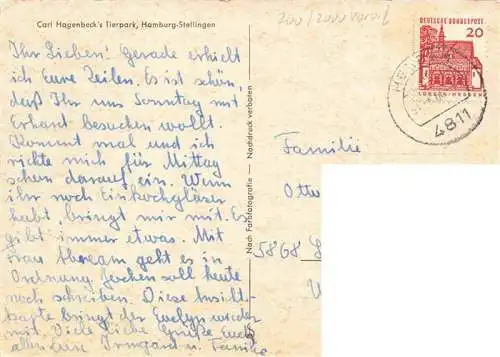 Carl Hagenbeck's Tierpark, Hamburg-Stellingen
Ihr Lieben! Gerade erhielt
ich Eure Zeilen. Es ist schön,
daß Ihr uns Sonntag mit
Erhard besuchen wollt.
Kommt mal und ich
richte mich für Mittag
schon darauf ein. Wenn
ihr noch Einkochgläser
habt, bringt mir mit. Es
gibt immer etwas. Mit
Frau geht es in
Ordnung. Jochen soll heute
noch schreiben. Diese Ansichts-
karte bringt der Evelyn wieder
mit. Viele liebe Grüße Euch
allen Eure Irmgard u. Familie
Nach Farbfotografie — Nachdruck verboten
DEUTSCHE BUNDESPOST
20
LORSCH/HESSEN
4811
Familie
Otto
5868